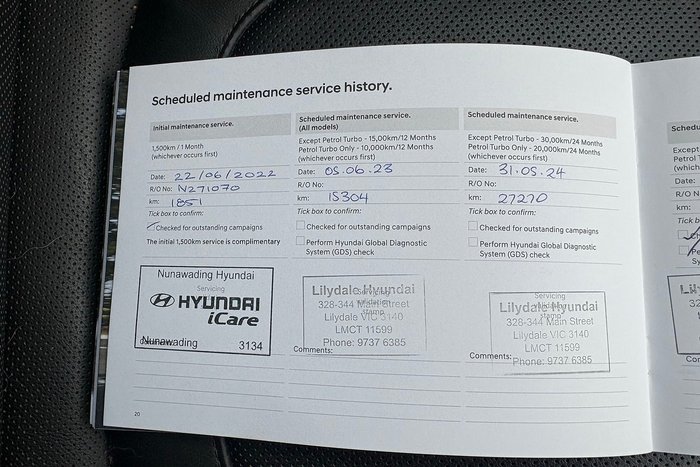 Scheduled maintenance service history.
Initial maintenance service.
1,500km / 1 Month
(whichever occurs first)
Date: 22/06/2022
R/O No: N271070
km: 1851
Tick box to confirm:
Checked for outstanding campaigns
The initial 1,500km service is complimentary
Nunawading Hyundai
Servicing
HYUNDAI
iCare
Nunawading 3134
Scheduled maintenance service.
(All models)
Except Petrol Turbo - 15,00km/12 Months
Petrol Turbo Only - 10,000km/12 Months
(whichever occurs first)
Date: 05.06.23
R/O No:
km: 15304
Tick box to confirm:
Checked for outstanding campaigns
Perform Hyundai Global Diagnostic
System (GDS) check
Servicing
validation
stamp
Lilydale Hyundai
328-344 Main Street
Lilydale VIC 3140
LMCT 11599
Phone: 9737 6385
Comments:
Scheduled maintenance service.
Except Petrol Turbo - 30,00km/24 Months
Petrol Turbo Only - 20,000km/24 Months
(whichever occurs first)
Date: 31.05.24
R/O No:
km: 27270
Tick box to confirm:
Checked for outstanding campaigns
Perform Hyundai Global Diagnostic
System (GDS) check
Servicing
validation
stamp
Lilydale Hyundai
328-344 Main Street
Lilydale VIC 3140
LMCT 11599
Phone: 9737 6385
Comments:
20
Schedu
Except P
Petrol Tu
(whichev
Date:
R/O No:
km:
Tick b
Ch
Pe
Sy
Lil
32